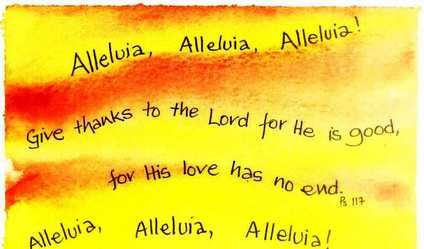 Alleluia, Alleluia, Alleluia!
Give thanks to the Lord for He is good,
for His love has no end.
Ps 117
Alleluia, Alleluia, Alleluia!